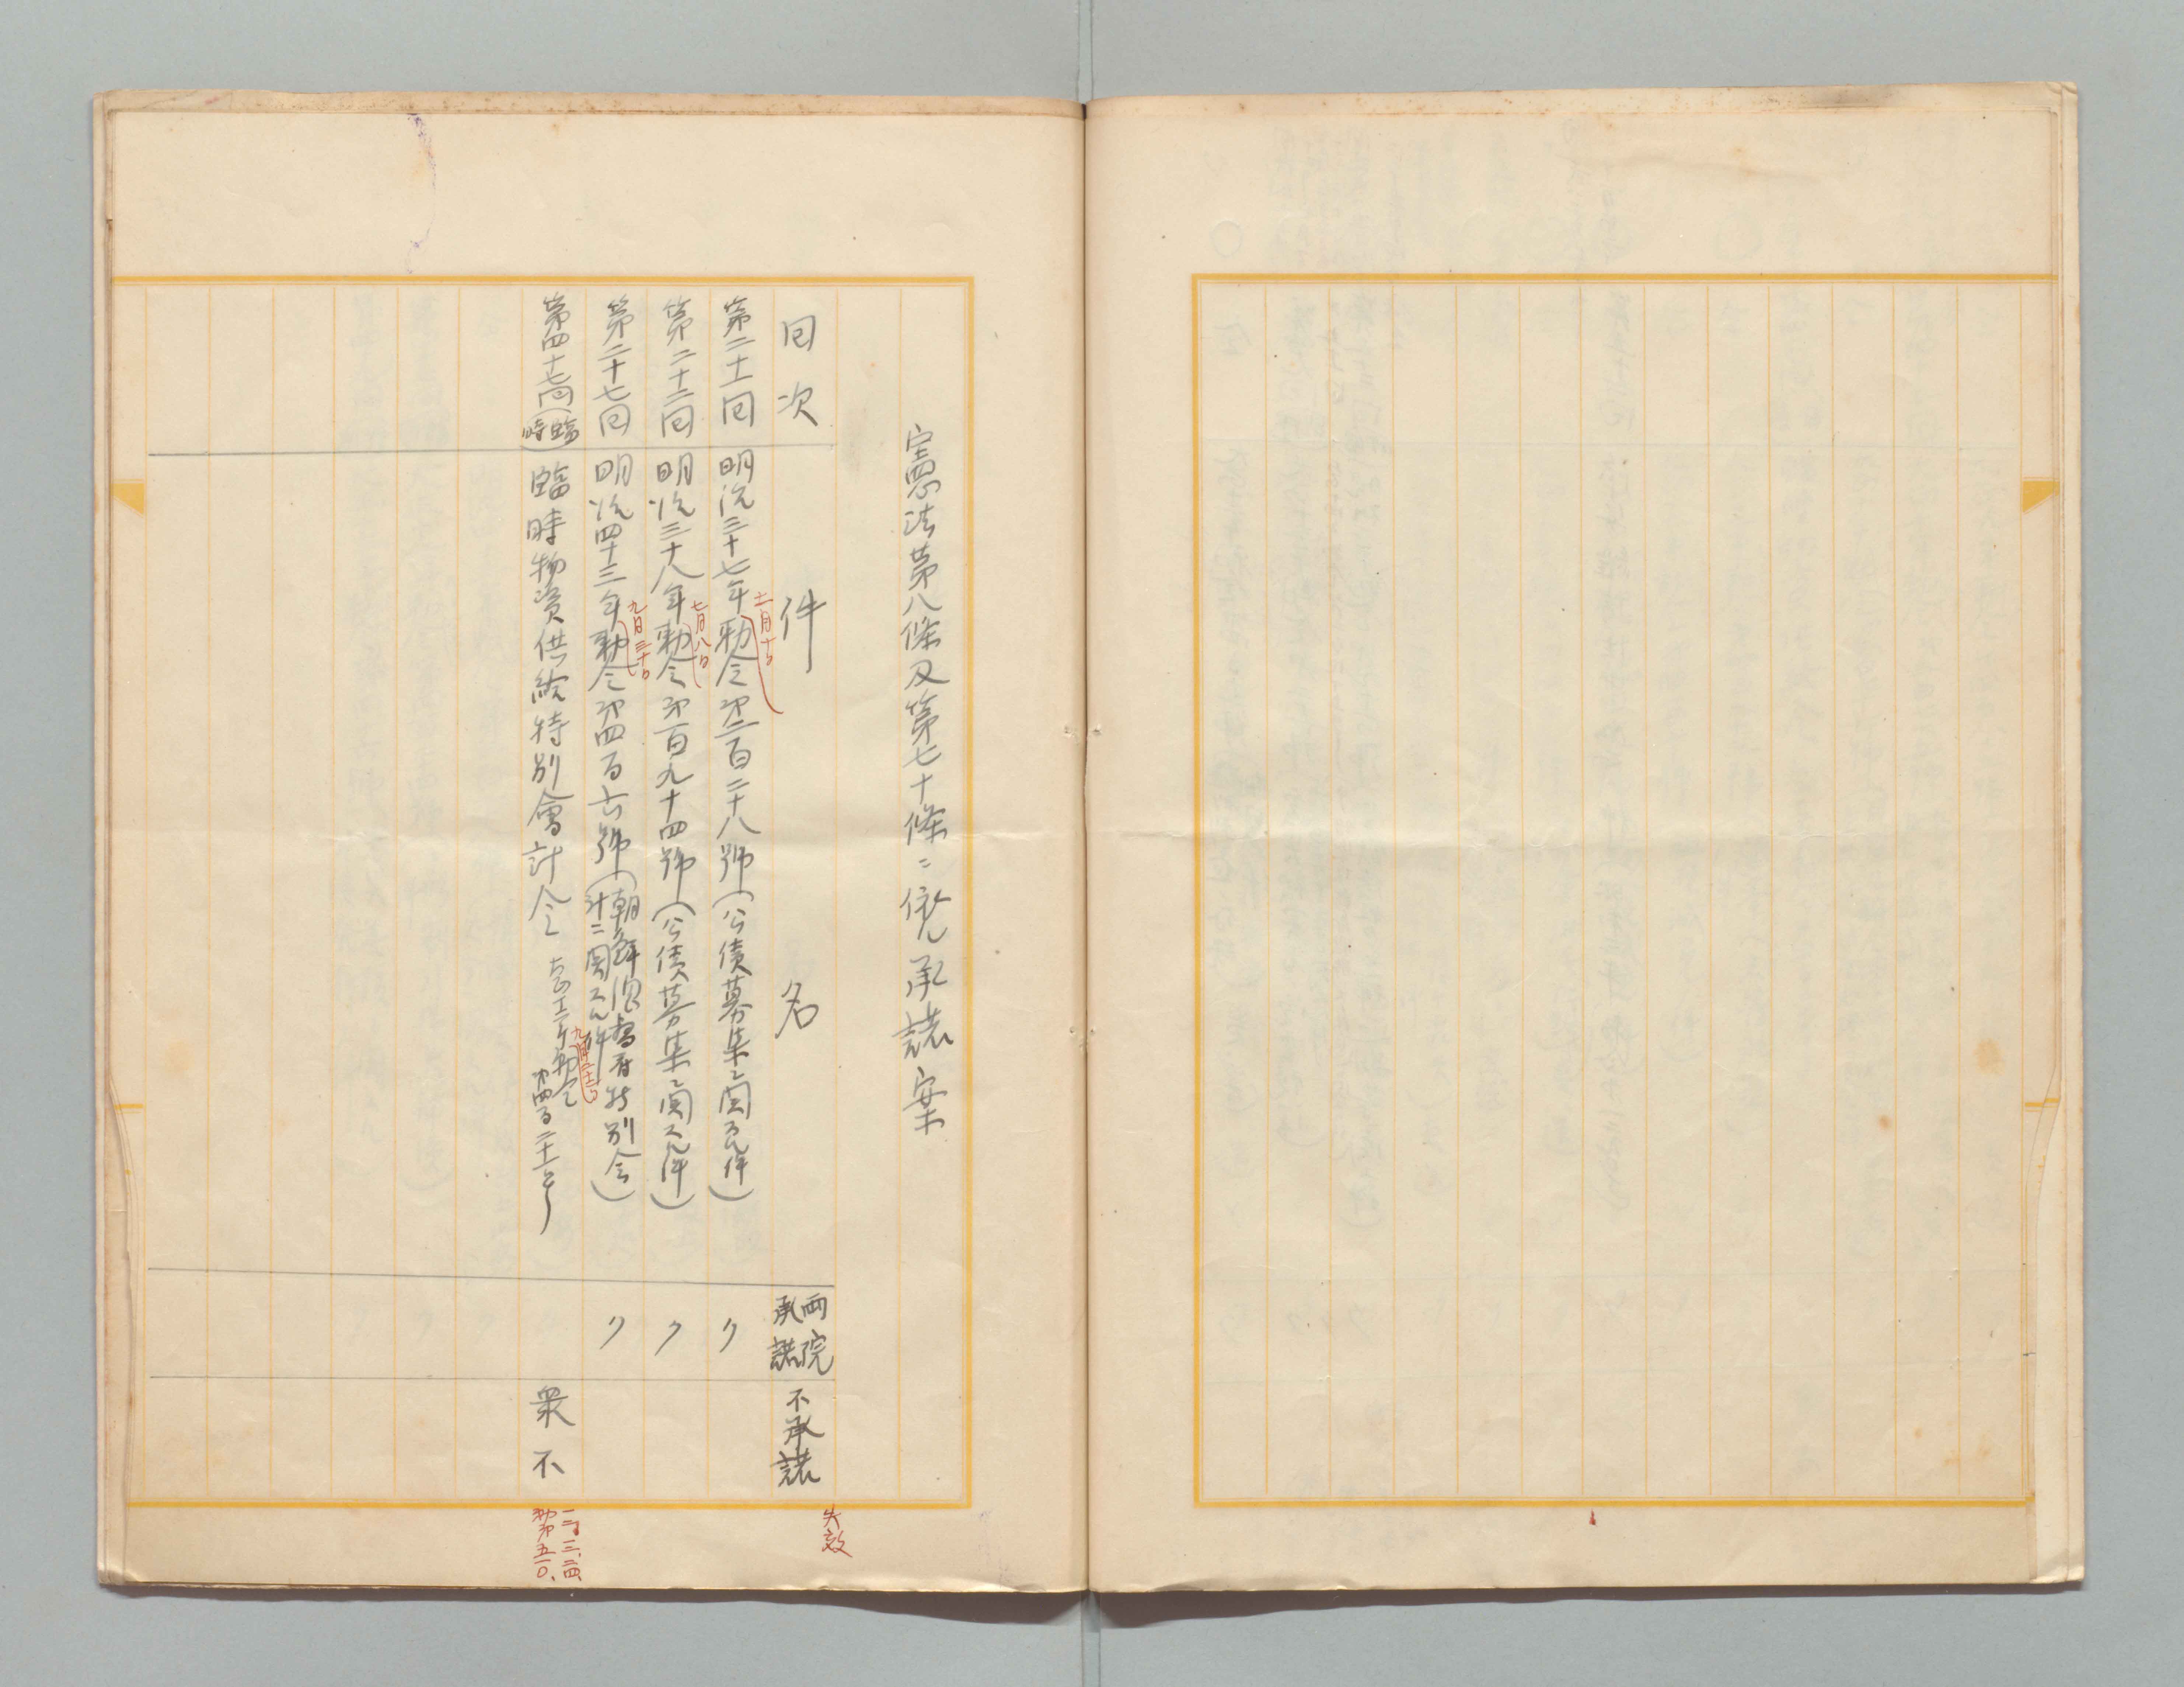 憲法第八條及第七十條ニ依ル承諾案
回次
件名
両院承諾
不承諾
失效
第二十一回
明治三十七年勅令第二百二十八號(公債募集ニ関スル件)
十一月十日
〃
第二十二回
明治三十八年勅令第百九十四號(公債募集ニ関スル件)
七月八日
〃
第二十七回
明治四十三年勅令第四百六號(朝鮮總督府特別会計ニ関スル件)
九月三十日
〃
第四十七回(臨時)
臨時物資供給特別會計令
大正十二年勅令第四百二十一号
九月二十二日
衆不
一二、三、二四、
勅第五一〇、